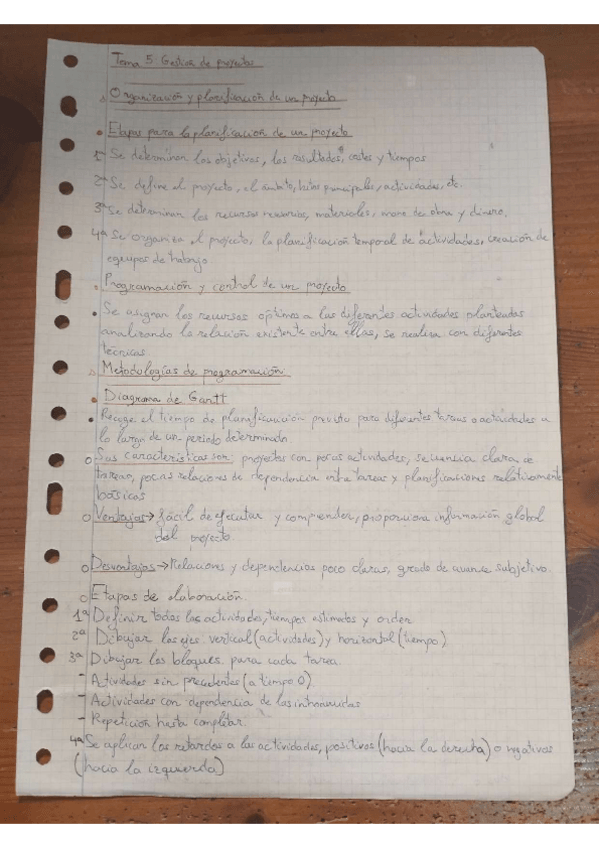 Tema 5: Gestion de proyectos
Organización y planificación de un proyecto
Etapas para la planificacion de un proyecto
1ª Se determinan los objetivos, los resultados, costes y tiempos
2ª Se define el proyecto, el ámbito, hitos principales, actividades, etc.
3ª Se determinan los recursos necesarios, materiales, mano de obra y dinero.
4ª Se organiza el proyecto, la planificación temporal de actividades, creación de
equipos de trabajo
Programación y control de un proyecto
Se asignan los recursos optimos a las diferentes actividades planteadas
analizando la relación existente entre ellas, se realiza con diferentes
técnicas.
Metodologías de programación
Diagrama de Gantt
Recoge el tiempo de planificación previsto para diferentes tareas o actividades a
lo largo de un periodo determinado
Sus caracteristicas son: proyectos con pocas actividades, secuencia clara de
tareas, pocas relaciones de dependencia entre tareas y planificaciones relativamente
básicas
Ventajas → fácil de ejecutar y comprender, proporciona información global
del proyecto.
Desventajas → Relaciones y dependencias poco claras, grado de avance subjetivo.
Etapas de elaboración.
1ª Definir todas las actividades, tiempos estimados y orden
2ª Dibujar los ejes: vertical (actividades) y horizontal (tiempo)
3ª Dibujar los bloques para cada tarea.
- Actividades sin precedentes (a tiempo 0)
- Actividades con dependencia de las introducidas
- Repetición hasta completar.
4ª Se aplican los retardos a las actividades, positivos (hacia la derecha) o negativos
(hacia la izquierda)